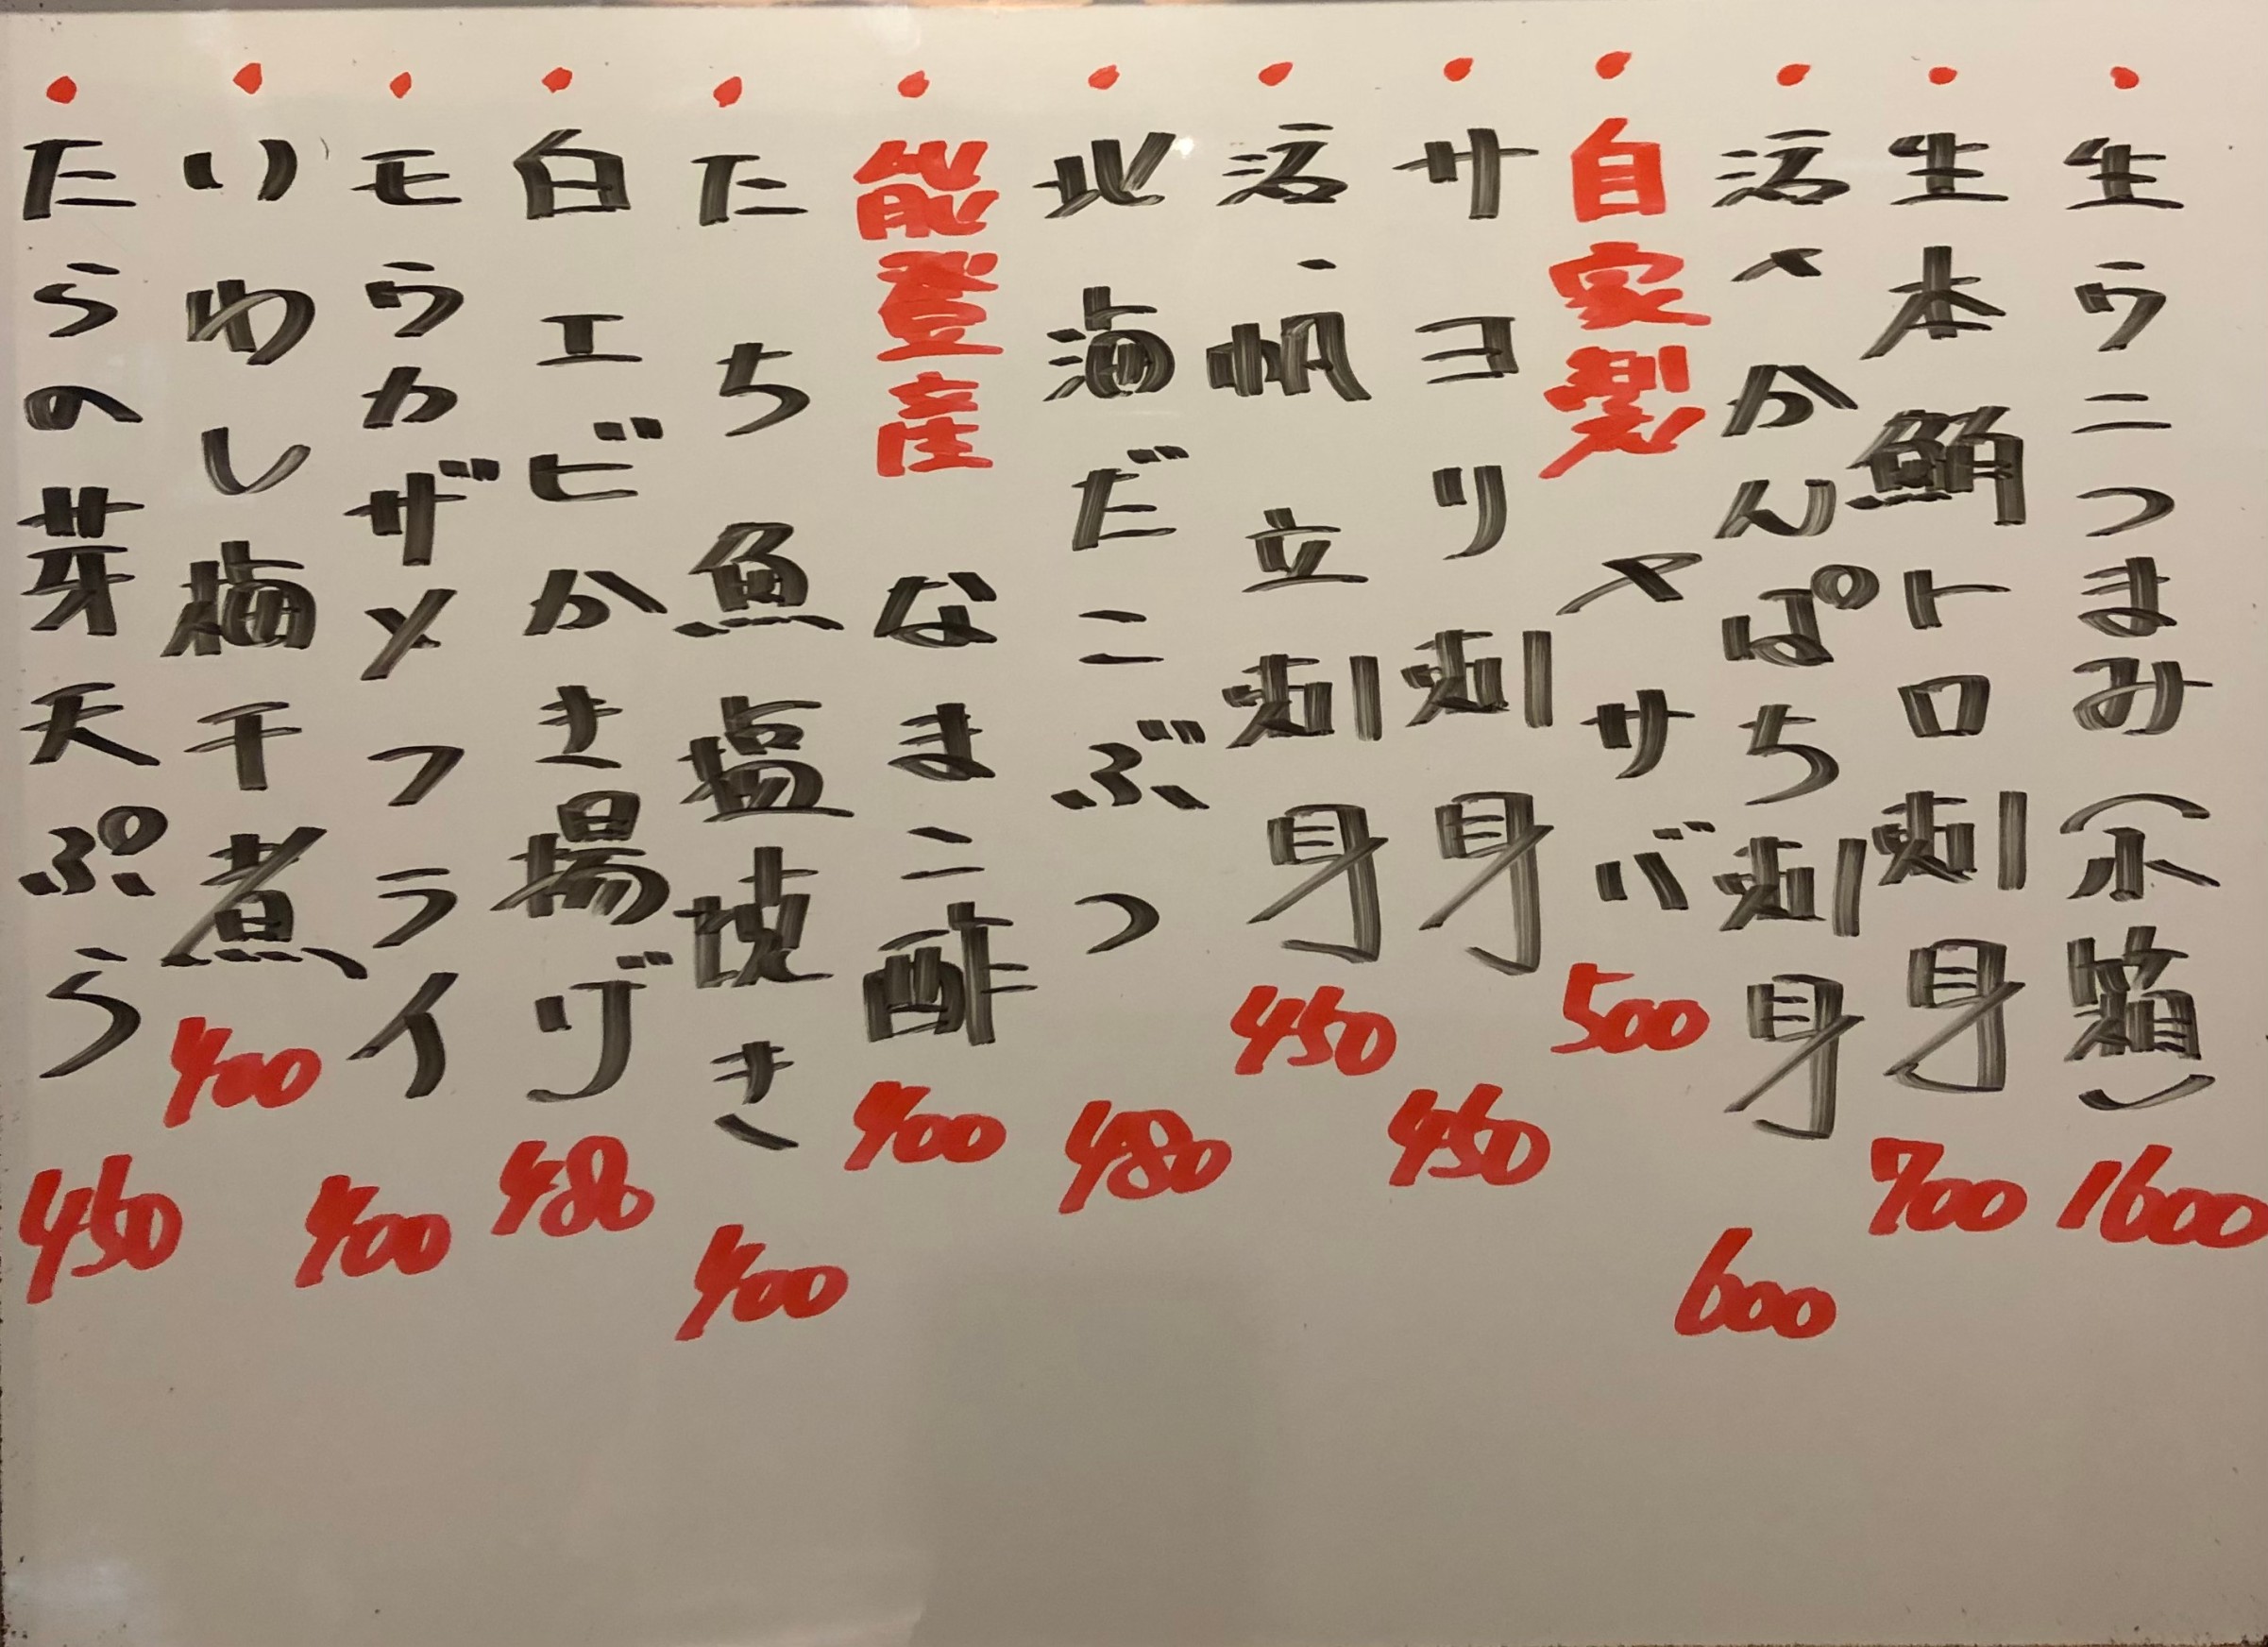 ・生ウニつまみ(小箱)1600
・生本鮪トロ刺身700
・活〆かんぱち刺身600
・自家製〆サバ500
・サヨリ刺身450
・活帆立刺身450
・北海だこぶつ480
・能登産なまこ酢400
・たち魚塩焼き400
・白エビかき揚げ480
・モウカザメフライ400
・いわし梅干煮400
・たらの芽天ぷら450